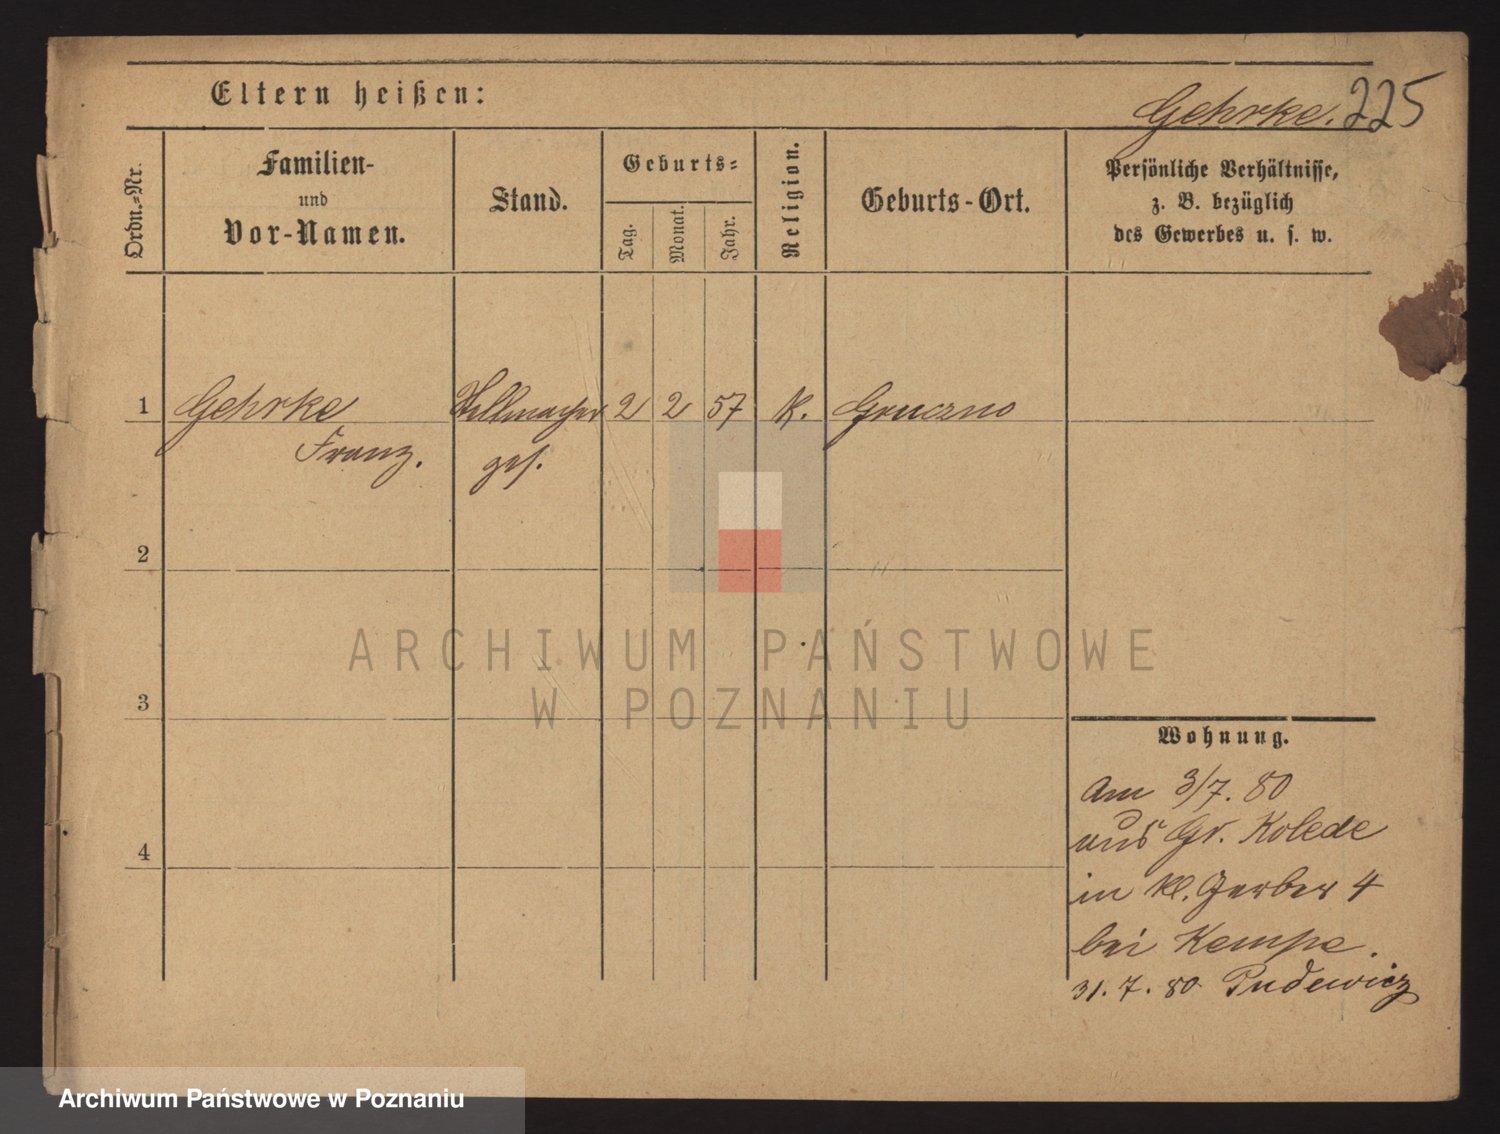 Eltern heißen:
Gehrke. 225
Ordn.-Nr.
Familien-
und
Vor-Namen.
Stand.
Geburts-
Tag.
Monat.
Jahr.
Religion.
Geburts-Ort.
Persönliche Verhältnisse,
z. B. bezüglich
des Gewerbes u. s. w.
1 Gehrke 2 2 57 K. Gruczno
Franz. ges.
2
3
4
Wohnung.
Am 3/7. 80
aus Gr. Kolede
in Kl. Gerber 4
bei Kempe.
31. 7. 80 Pudewicz
ARCHIWUM PAŃSTWOWE
W POZNANIU
Archiwum Państwowe w Poznaniu